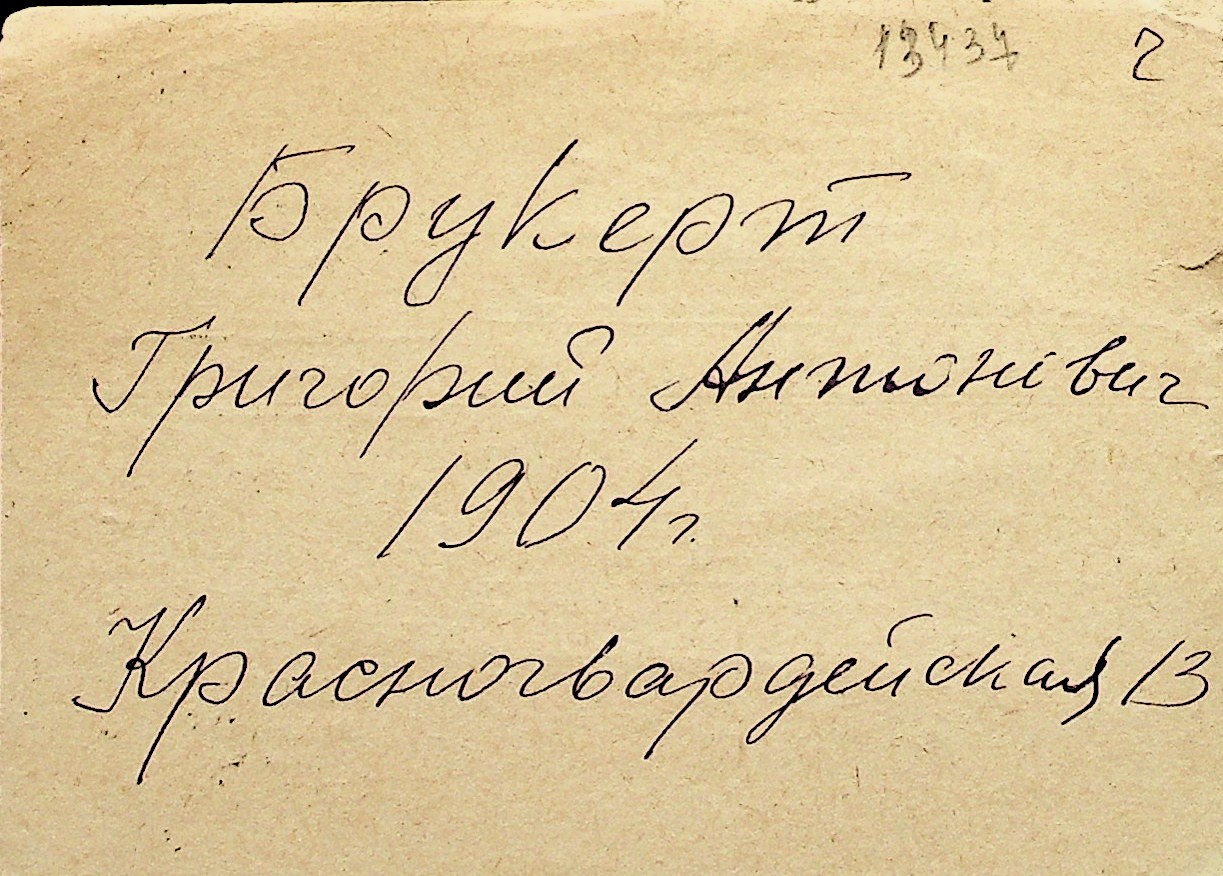 13437 2
Брукерт
Григорий Антонович
1904 г.
Красногвардейская 13